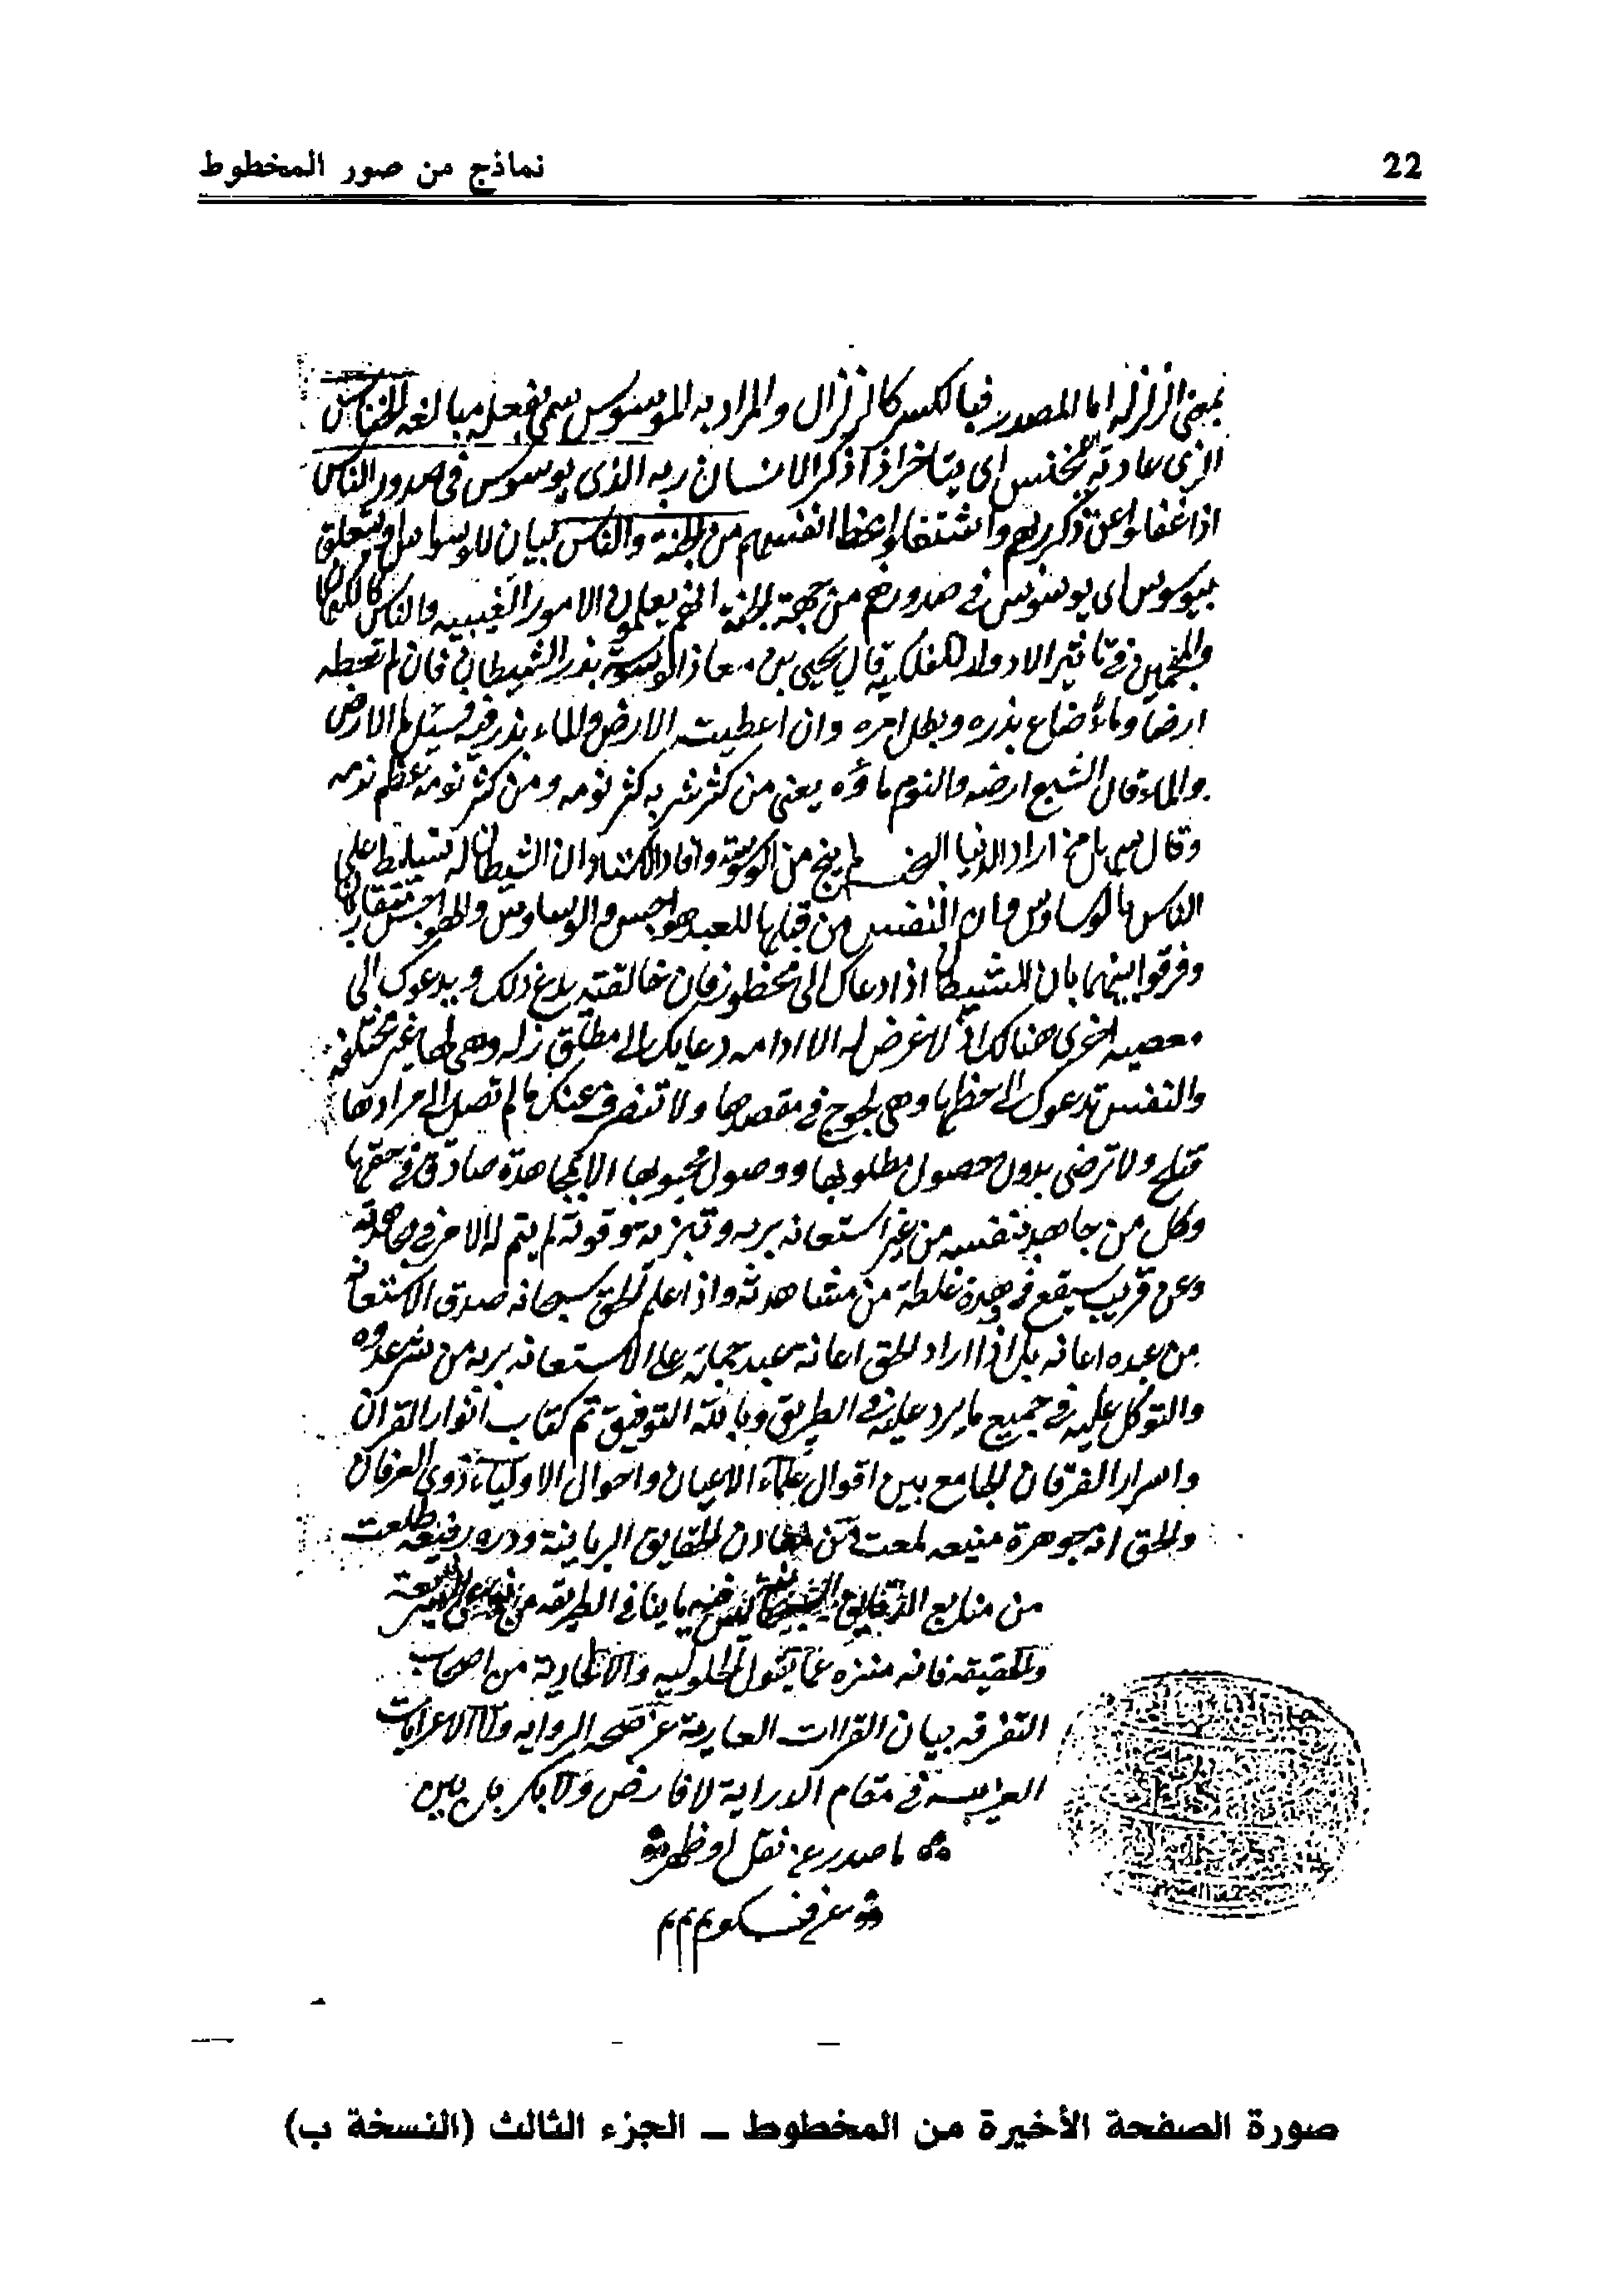 22
نماذج من صور المخطوط
بمعنى الزلزله اما المصدر فبالكسر كالزلزال والمراد به الموسوس سمى بفعله مبالغه الخناس
الذى عادته يخنس اى يتاخر اذا ذكر الانسان ربه الذى يوسوس فى صدور الناس
اذا غفلوا عن ذكر ربهم واشتغلوا بحظ انفسهم من الجنة والناس بيان للوسواس او متعلق
بيوسوس اى يوسوس فى صدورهم من جهة الجنة انهم يعلمون الامور الغيبيه والناس كالكهان
والمنجمين فى تاثير الادوار الفلكية قال يحيى بن معاذ الوسوسة بذر الشيطان فان لم تعطه
ارضا وماء ضاع بذره وبطل امره وان اعطيت الارض والماء بذر فيه فسئل ما الارض
والماء قال الشبع ارضه والنوم ماؤه يعنى من كثر شربه كثر نومه ومن كثر نومه عظم ندمه
وقال من اراد الدنيا لم ينج من الوسوسة وافاد الاستاد ان الشيطان له تسليط على
الناس بالوساوس وان النفس من قبلها للعبد هواجس والوساوس والهواجس
وفرقوا بينهما بان الشيطان اذا دعاك الى محظور فان خالفته يدع ذلك ويدعوك الى
معصيه اخرى هنالك اذ لا غرض له الا ادامه دعايك الى مطلق زله وهى لها غير مختلفة
والنفس تدعوك الى حظها وهى لجوج فى مقصدها ولا تنصرف عنك مالم تصل الى مرادها
ولا ترضى بدون حصول مطلوبها ووصول محبوبها الا بمجاهدة صادق فى حقها
وكل من جاهد بنفسه من غير استعانه بربه وتبر من وقوته لم يتم له الامر فى مجاهدته
وعن قريب سيقع فى وهدة غلطة من مشاهدته واذا علم الحق سبحانه صدق الاستعانه
من عبده اعانه بل اذا اراد الحق اعانة عبد حمله على الاستعانه بربه من شر عدوه
والتوكل عليه فى جميع ما يرد عليه فى الطريق وبالله التوفيق تم كتاب انوار القرآن
واسرار الفرقان الجامع بين اقوال علماء الاعيان واحوال الاولياء ذوى العرفان
والحق انه جوهرة منيعه لمعت من معادن الحقايق الربانية ودره رفيعه طلعت
من منابع الدقايق ليس فيه ما ينافى الطريقه من الشريعة
والحقيقه فانه منزه عما يقول الحلوليه والاتحادية من اصحاب
التفرقه بيان القراات العارية عن صحه الروايه ولا الاعرابات
الغريبه فى مقام الدراية لا فارض ولا بكر بل بين
ما صدر عن نقل او ظهر
عن فكر
صورة الصفحة الأخيرة من المخطوط ــ الجزء الثالث (النسخة ب)